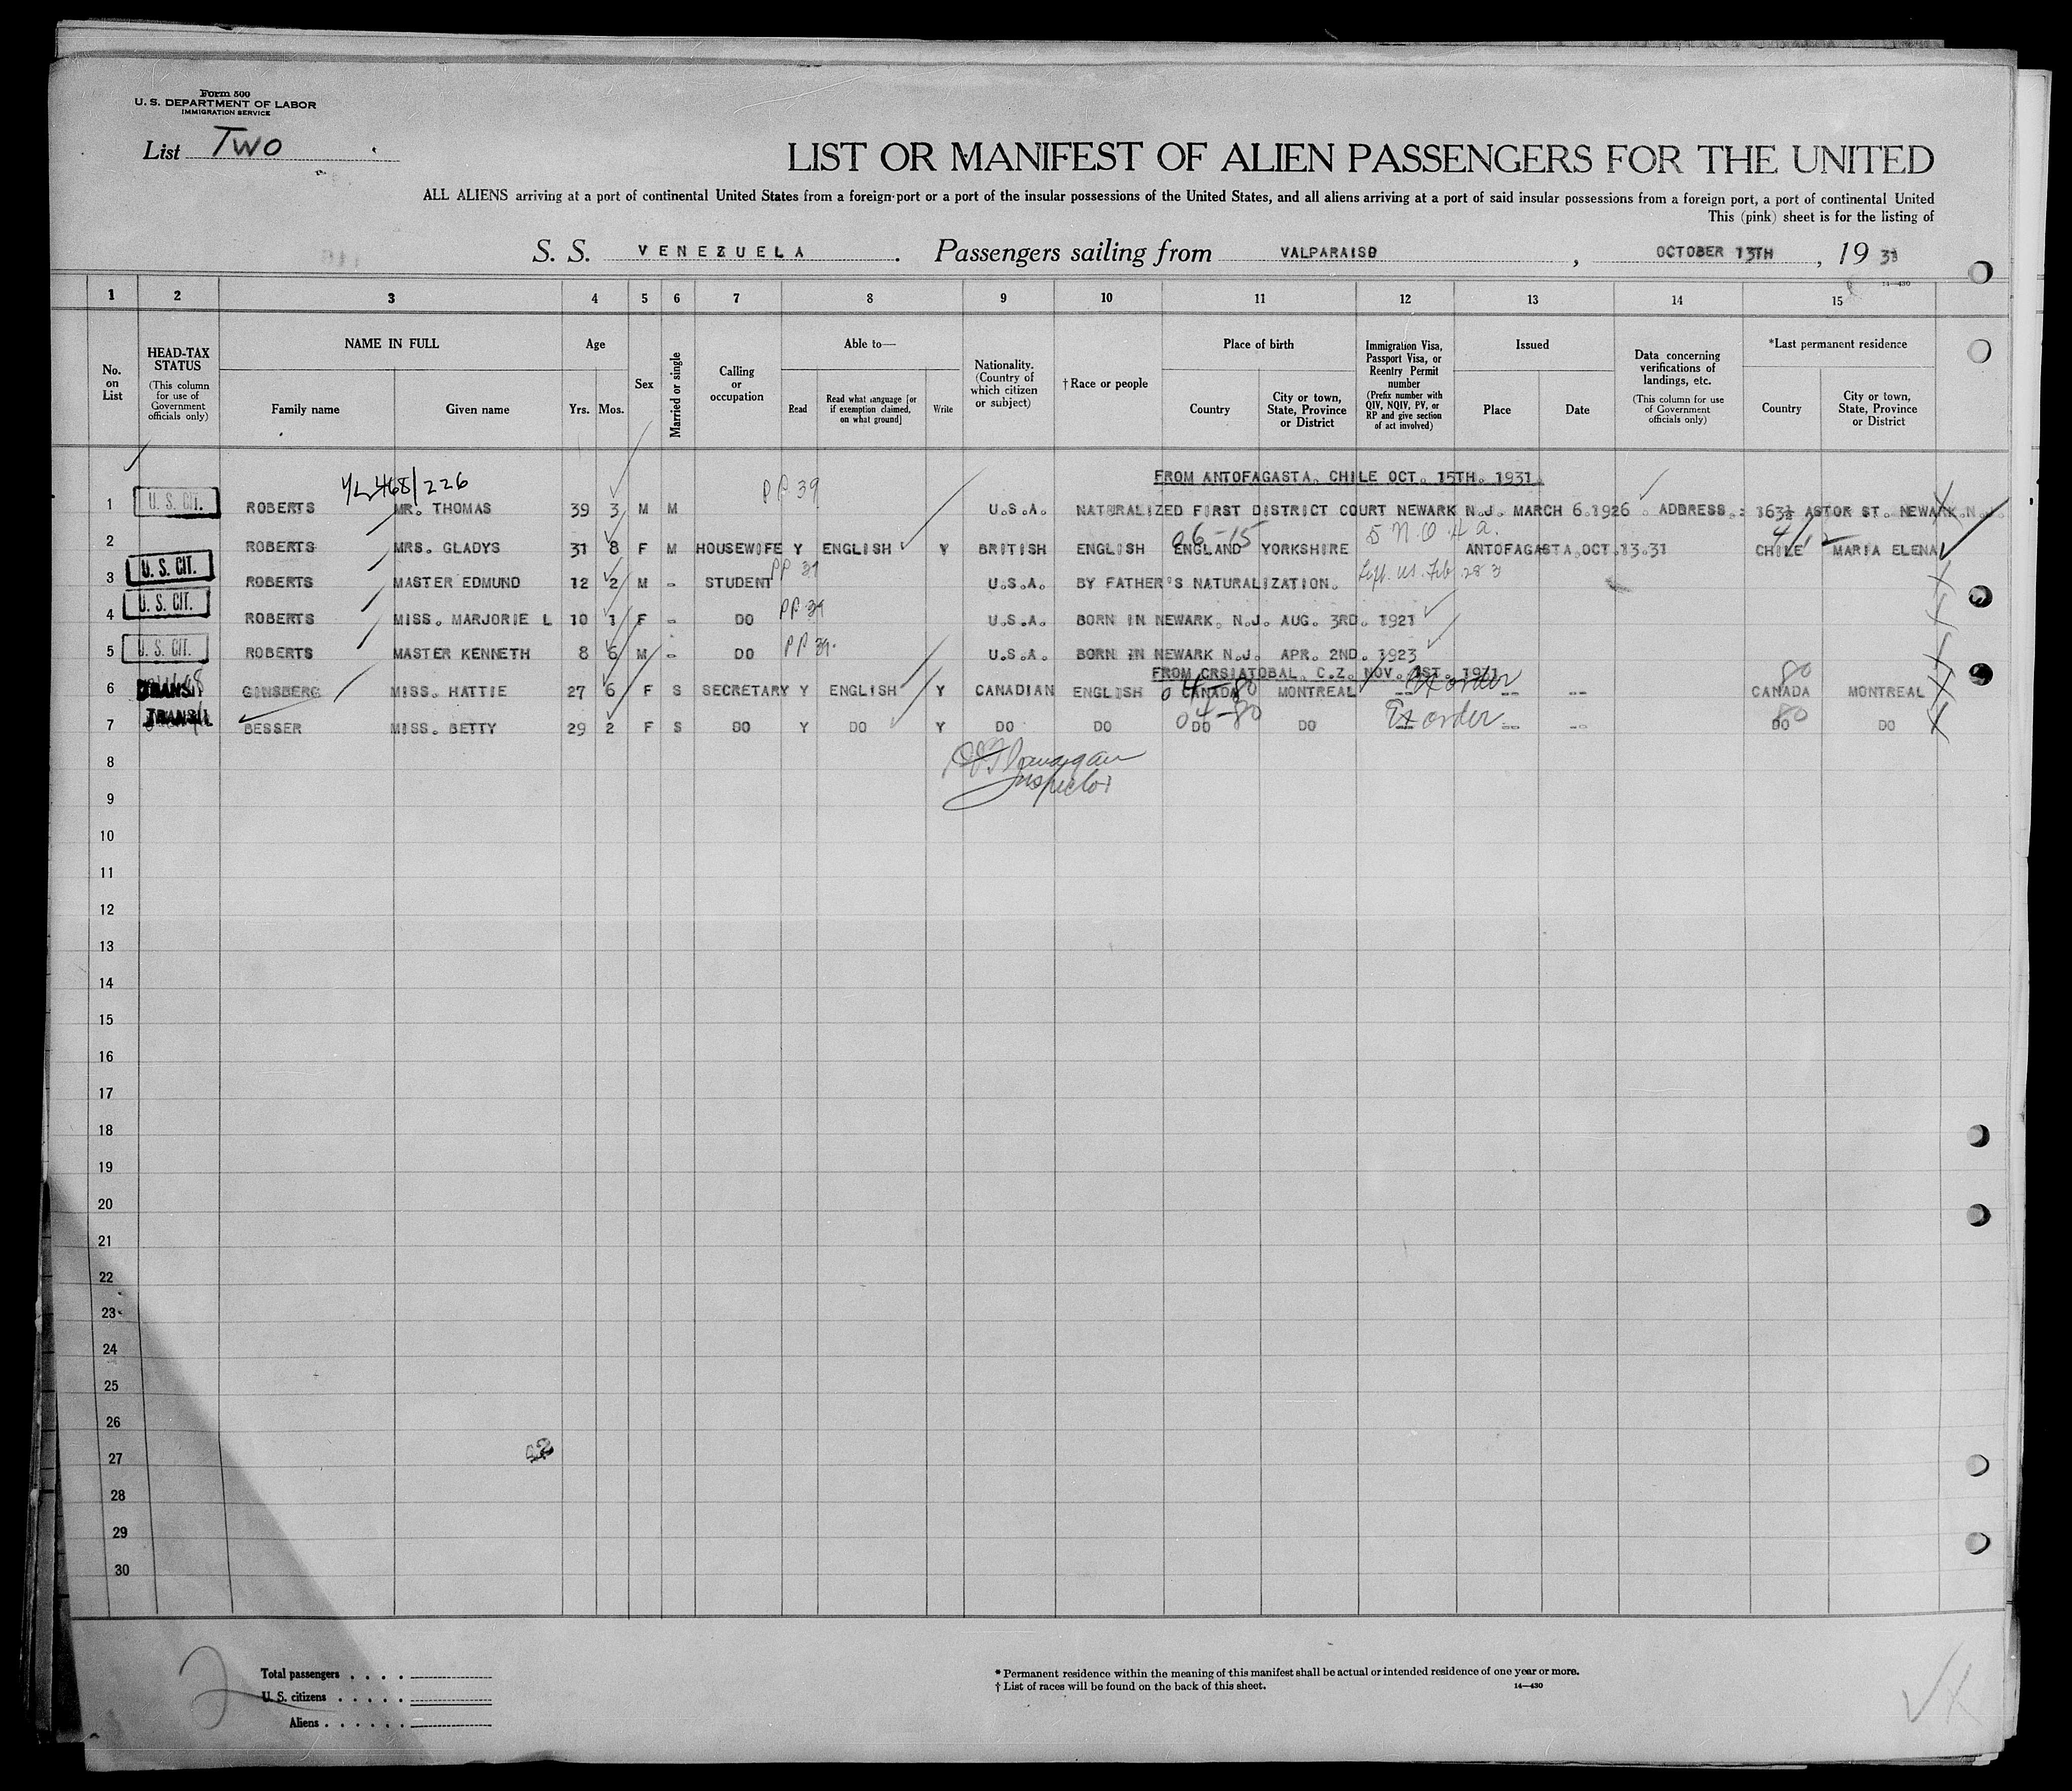 Form 500
U. S. DEPARTMENT OF LABOR
IMMIGRATION SERVICE
List Two
LIST OR MANIFEST OF ALIEN PASSENGERS FOR THE UNITED
ALL ALIENS arriving at a port of continental United States from a foreign port or a port of the insular possessions of the United States, and all aliens arriving at a port of said insular possessions from a foreign port, a port of continental United
This (pink) sheet is for the listing of
S. S. VENEZUELA. Passengers sailing from VALPARAISO, OCTOBER 13TH, 1931
14—430
1 2 3 4 5 6 7 8 9 10 11 12 13 14 15
No. on List
HEAD-TAX STATUS (This column for use of Government officials only)
NAME IN FULL
Family name Given name
Age
Yrs. Mos.
Sex
Married or single
Calling or occupation
Able to—
Read
Read what language [or if exemption claimed, on what ground]
Write
Nationality. (Country of which citizen or subject)
†Race or people
Place of birth
Country
City or town, State, Province or District
Immigration Visa, Passport Visa, or Reentry Permit number (Prefix number with QIV, NQIV, PV, or RP and give section of act involved)
Issued
Place Date
Data concerning verifications of landings, etc. (This column for use of Government officials only)
*Last permanent residence
Country
City or town, State, Province or District
468/226
PP 39
FROM ANTOFAGASTA. CHILE OCT. 15TH. 1931.
1 U. S. CIT. ROBERTS MR. THOMAS 39 3 M M U.S.A. NATURALIZED FIRST DISTRICT COURT NEWARK N.J. MARCH 6.1926 . ADDRESS.: 163½ ASTOR ST. NEWARK.N.J.
06-15
2 ROBERTS MRS. GLADYS 31 8 F M HOUSEWIFE Y ENGLISH Y BRITISH ENGLISH ENGLAND YORKSHIRE ANTOFAGASTA.OCT.13.31 CHILE MARIA ELENA
3 U. S. CIT. ROBERTS MASTER EDMUND 12 2 M - STUDENT PP 39 U.S.A. BY FATHER'S NATURALIZATION.
4 U. S. CIT. ROBERTS MISS. MARJORIE L 10 1 F - DO PP 39 U.S.A. BORN IN NEWARK, N.J. AUG. 3RD. 1921
5 U. S. CIT. ROBERTS MASTER KENNETH 8 6 M - DO PP 39. U.S.A. BORN IN NEWARK N.J. APR. 2ND. 1923
FROM CRSIATOBAL. C.Z. NOV. 1ST. 1931
6 TRANSIT GINSBERG MISS. HATTIE 27 6 F S SECRETARY Y ENGLISH Y CANADIAN ENGLISH 04-80 CANADA MONTREAL -- Ex order -- -- 80 CANADA MONTREAL
7 TRANSIT BESSER MISS. BETTY 29 2 F S DO Y DO Y DO DO 04-80 DO DO -- Ex order -- -- 80 DO DO
8
Inspector
9
10
11
12
13
14
15
16
17
18
19
20
21
22
23
24
25
26
27
28
29
30
42
2
Total passengers . . . .
U. S. citizens . . . . .
Aliens . . . . . .
* Permanent residence within the meaning of this manifest shall be actual or intended residence of one year or more.
† List of races will be found on the back of this sheet.
14—430